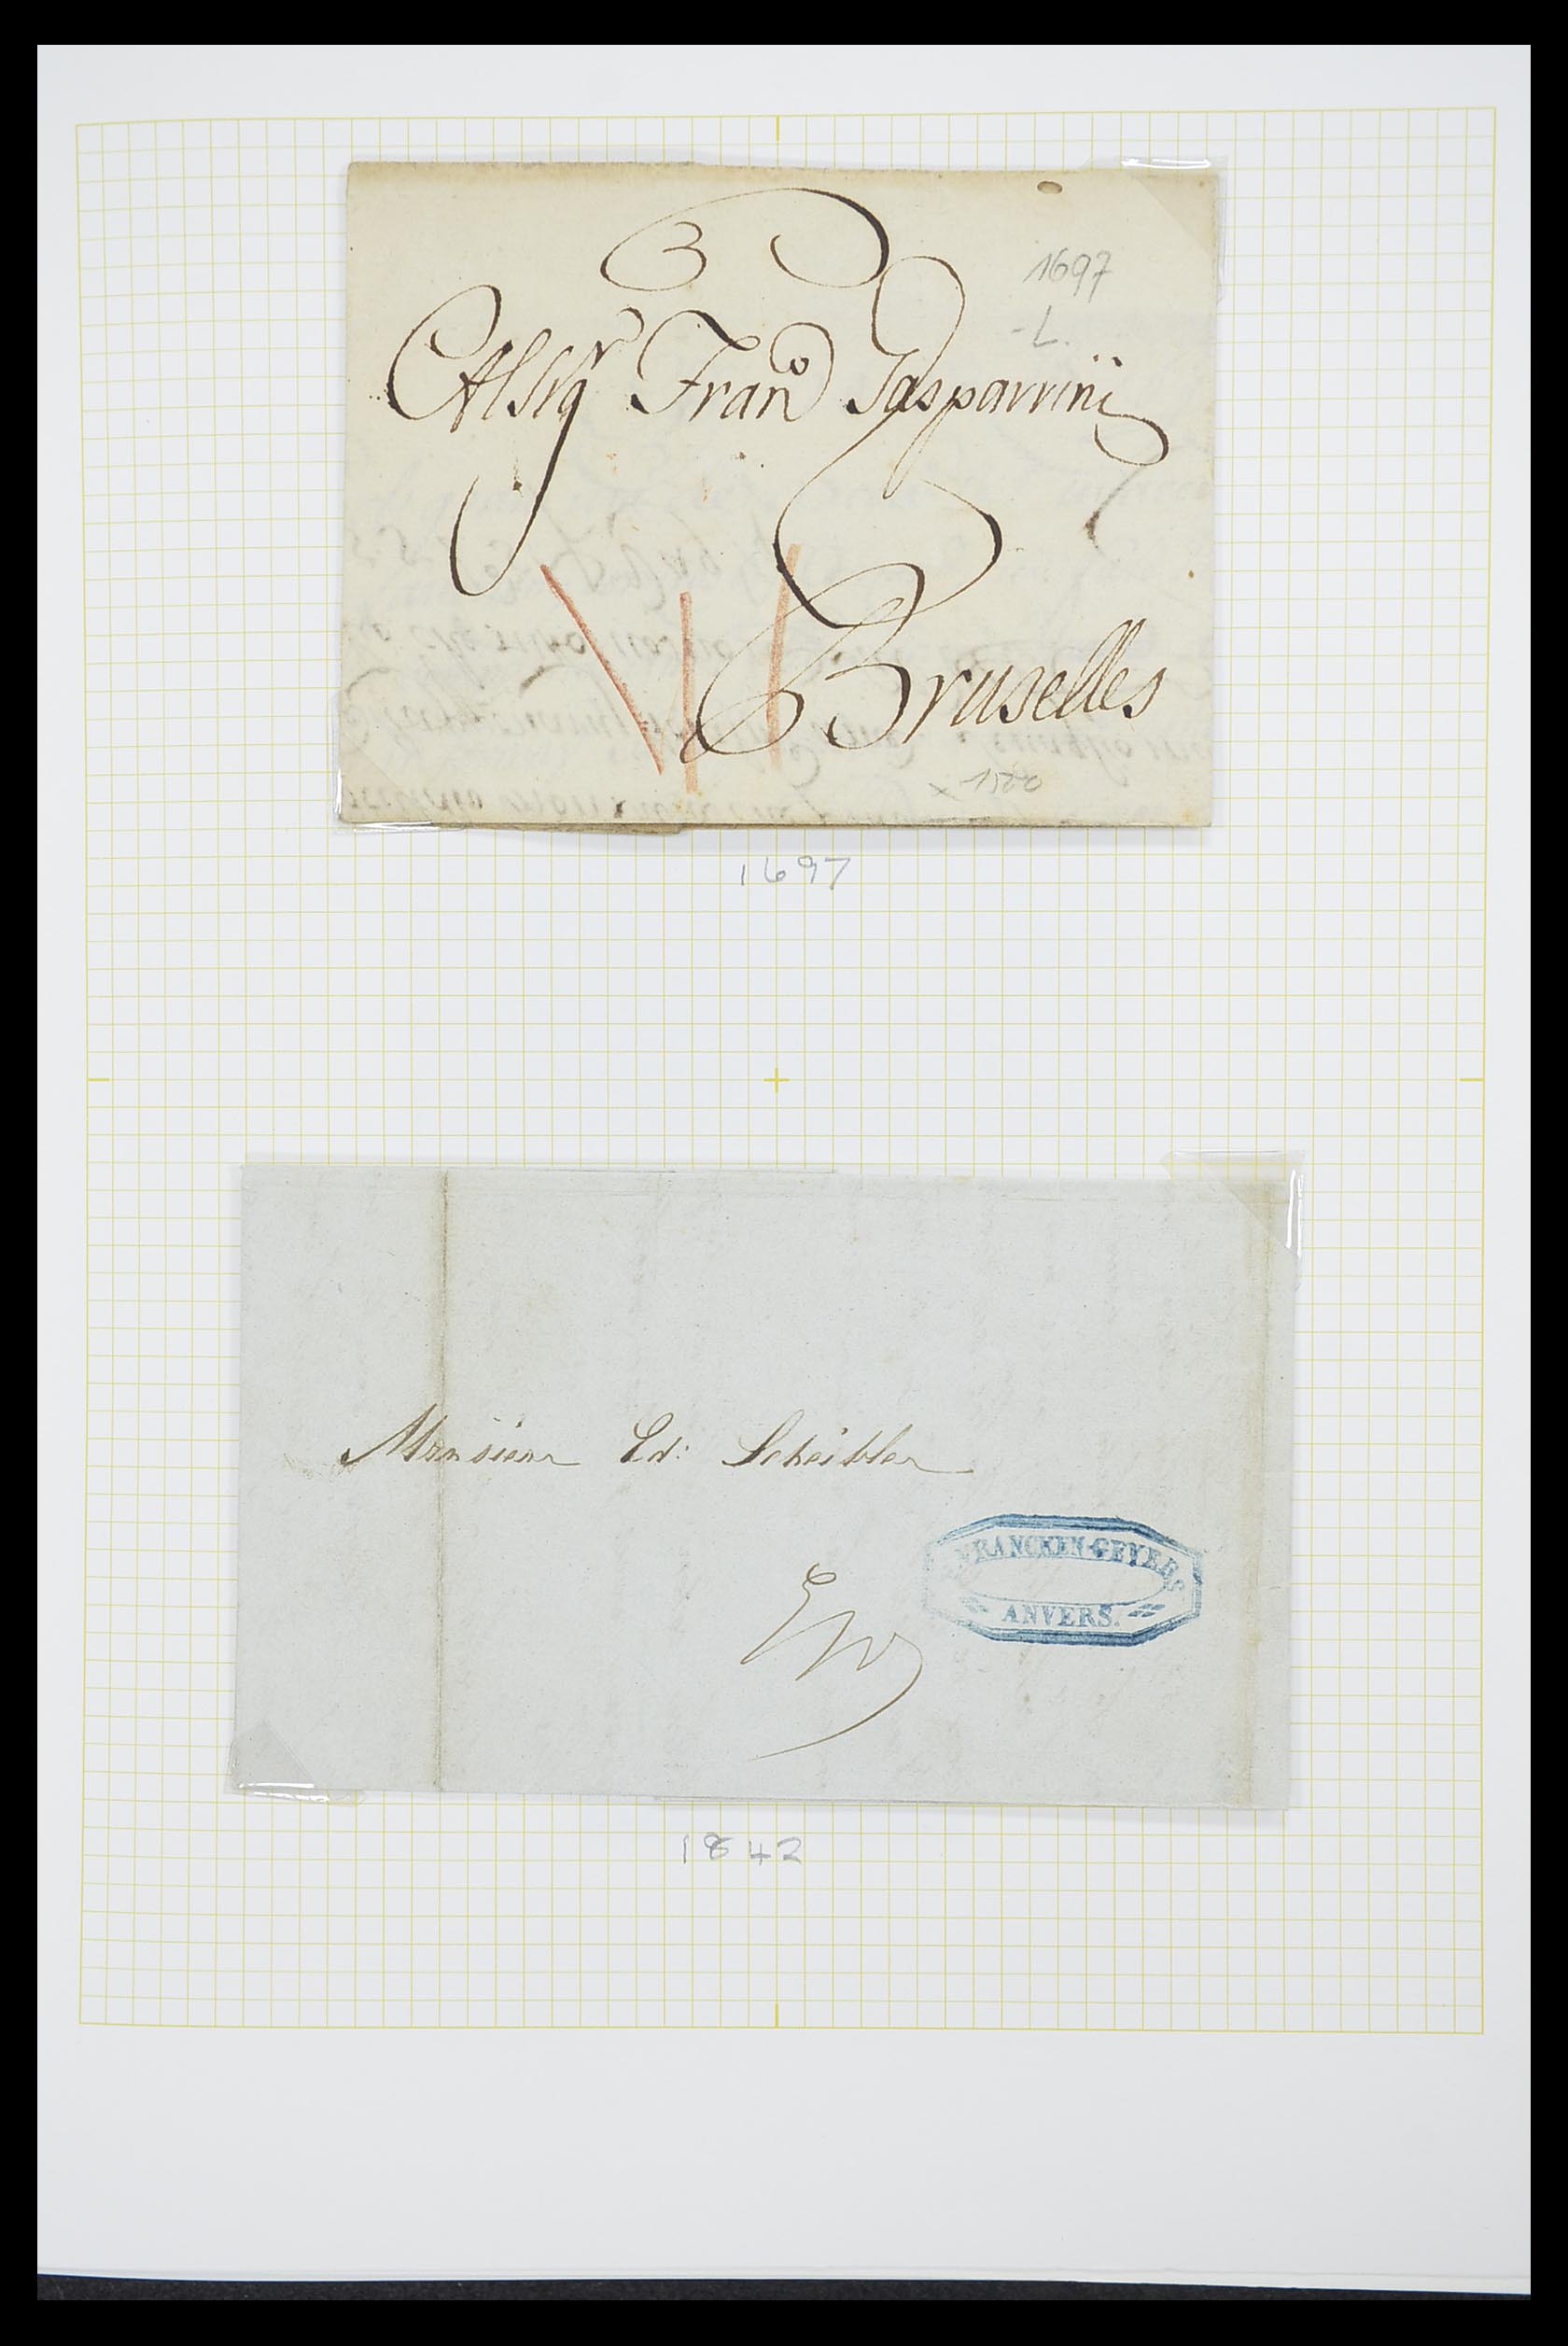 1697
-L.
Al Sigr Franco Gasparrini
Bruselles
x 1500
1697
Monsieur Ed: Scheibler
FRANCKEN-GEYERS
ANVERS.
E/V
1842